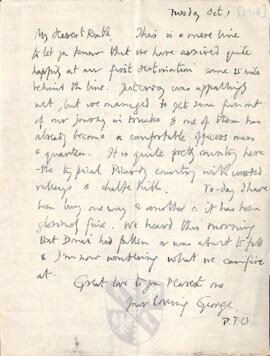 Tuesday Oct 1 [1918]
My dearest Ruth, This is a mere line
to let you know that we have arrived quite
happily at our first destination some 15 mile
behind the line. Yesterday was appallingly
wet, but we managed to get some fun out
of our journey in trucks & one of them has
already become a comfortable officers mess
& quarters. It is quite pretty country here
- the typical Picardy country with wooded
valleys & chalk hills. To-day I have
been busy one way & another & it has been
glorious & fine. We heard this morning
that Douai had fallen or was about to fall
& I'm now wondering what we can fire
at.
Great love to you dearest one
Your loving George.
P.T.O.